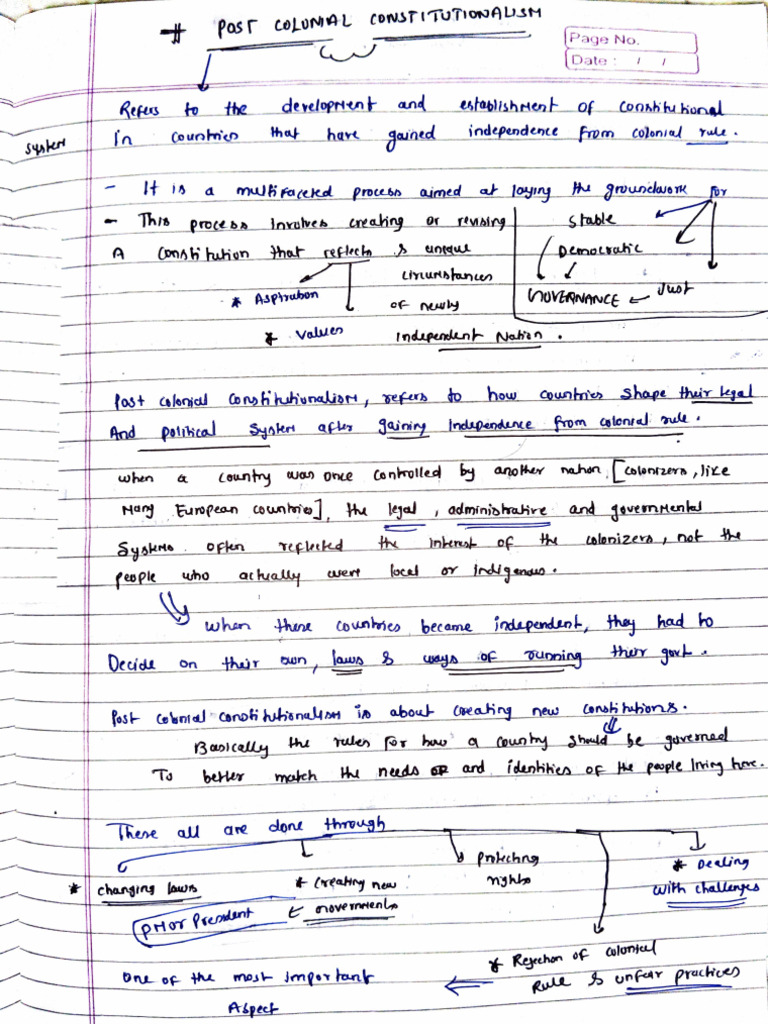 # POST COLONIAL CONSTITUTIONALISM
Page No.
Date : / /
Refers to the development and establishment of constitutional
system
in countries that have gained independence from colonial rule.
- It is a multifaceted process aimed at laying the groundwork for
- This process involves creating or revising
A constitution that reflects & unique
circumstances
of newly
Independent Nation.
* Aspiration
* values
Stable
Democratic
Just
GOVERNANCE
Post colonial constitutionalism, refers to how countries shape their legal
And political system after gaining Independence from colonial rule.
when a country was once controlled by another nation [colonizers, like
Many European countries], the legal, administrative and governmental
Systems often reflected the interest of the colonizers, not the
people who actually were local or indigenous.
When these countries became independent, they had to
Decide on their own, laws & ways of running their govt.
Post colonial constitutionalism is about creating new constitutions.
Basically the rules for how a country should be governed
To better match the needs and identities of the people living here.
These all are done through
* changing laws
* creating new
Governments
protecting
rights
* Dealing
with challenges
PM or President
* Rejection of colonial
Rule & unfair practices
One of the most important
Aspect